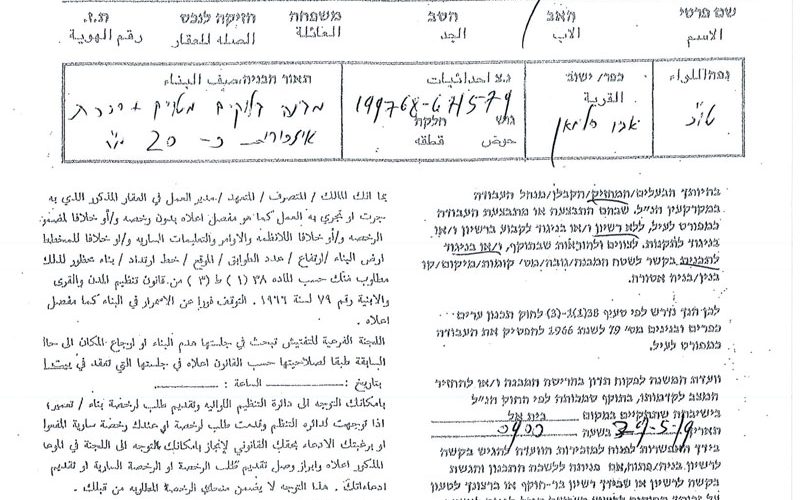 שם פרטי האב הסב משפחה חזיקה לנכס ת.ז.
الاسم الاب الجد العائلة الصله للعقار رقم الهوية
נפה/اللواء כפר/ ישוב נ.צ احداثيات תאור הבניה/صيف البناء
القرية 199768-671579 מבנה בלוקים
גוש חלקה
حوض قطعه כ- 20 מ"ר
بما انك المالك / المتصرف / المتعهد / مدير العمل في العقار المذكور الذي به
جرت او تجري به العمل كما هو مفصل اعلاه بدون رخصه و/أو خلافا
الرخصه و/أو خلافا للانظمه والاوامر والتعليمات الساريه و/او خلافا للمخطط
ارض البناء /ارتفاع / عدد الطوابق / الموقع / خط ارتداد / بناء محظور لذلك
مطلوب منك حسب الماده ٣٨ (١) ط (٣) من قانون تنظيم المدن والقرى
والابنية رقم ٧٩ لسنة ١٩٦٦ . التوقف فورا عن الاستمرار في البناء كما مفصل
اعلاه .
اللجنة الفرعية للتفتيش تبحث في جلستها هدم البناء او ارجاع المكان الى
السابقة طبقا لصلاحيتها حسب القانون اعلاه في جلستها التي تنعقد في
بتاريخ : الساعة :
بامكانك التوجه الى دائرة التنظيم اللوائية وتقديم طلب لرخصة بناء /
اذا توجهت لدائرة التنظم وقدمت طلب لرخصة او عندك رخصة سارية
او برغبتك الادعاء بحقك القانوني لإنجاز بامكانك التوجه الى اللجنة في
المذكور اعلاه وابراز وصل تقديم طلب الرخصة او الرخصة السارية او تقديم
ادعاءاتك . هذا التوجه لا يضمن منحك الرخصة المطلوبه من قبلك .
בהיותך הבעלים/המחזיק/הקבלן/מנהל העבודה
במקרקעין הנ"ל, שבהם התבצעה או מתבצעת העבודה
כמפורט לעיל, ללא רשיון ו/או בניגוד לקבוע ברשיון ו/או
בניגוד לתקנות, לצווים ולהוראות שבתוקף, ו/או בניגוד
לתכנית בקשר לשטח המבנה/גובה/מס' קומות/מיקום/קו
בנין/בניה אסורה.
לכן הנך נדרש לפי סעיף 38(1)-(3) לחוק תכנון ערים
כפרים ובנינים מס' 79 לשנת 1966 להפסיק את העבודה
כמפורט לעיל.
וועדת המשנה לפקוח תדון בהריסת המבנה ו/או להחזיר
המצב לקדמותו, בתוקף סמכותה לפי החוק הנ"ל
בישיבתה שתתקיים במקום בית אל
תאריך 29-5-19 בשעה 0900
בידך האפשרות לפנות למזכירות הוועדה להגיש בקשה
לרשיון בניה/פתוח, אם פנית ללשכת התכנון והגשת
בקשה לרשיון או שבידך רשיון בר-תוקף או ברצונך לטעון